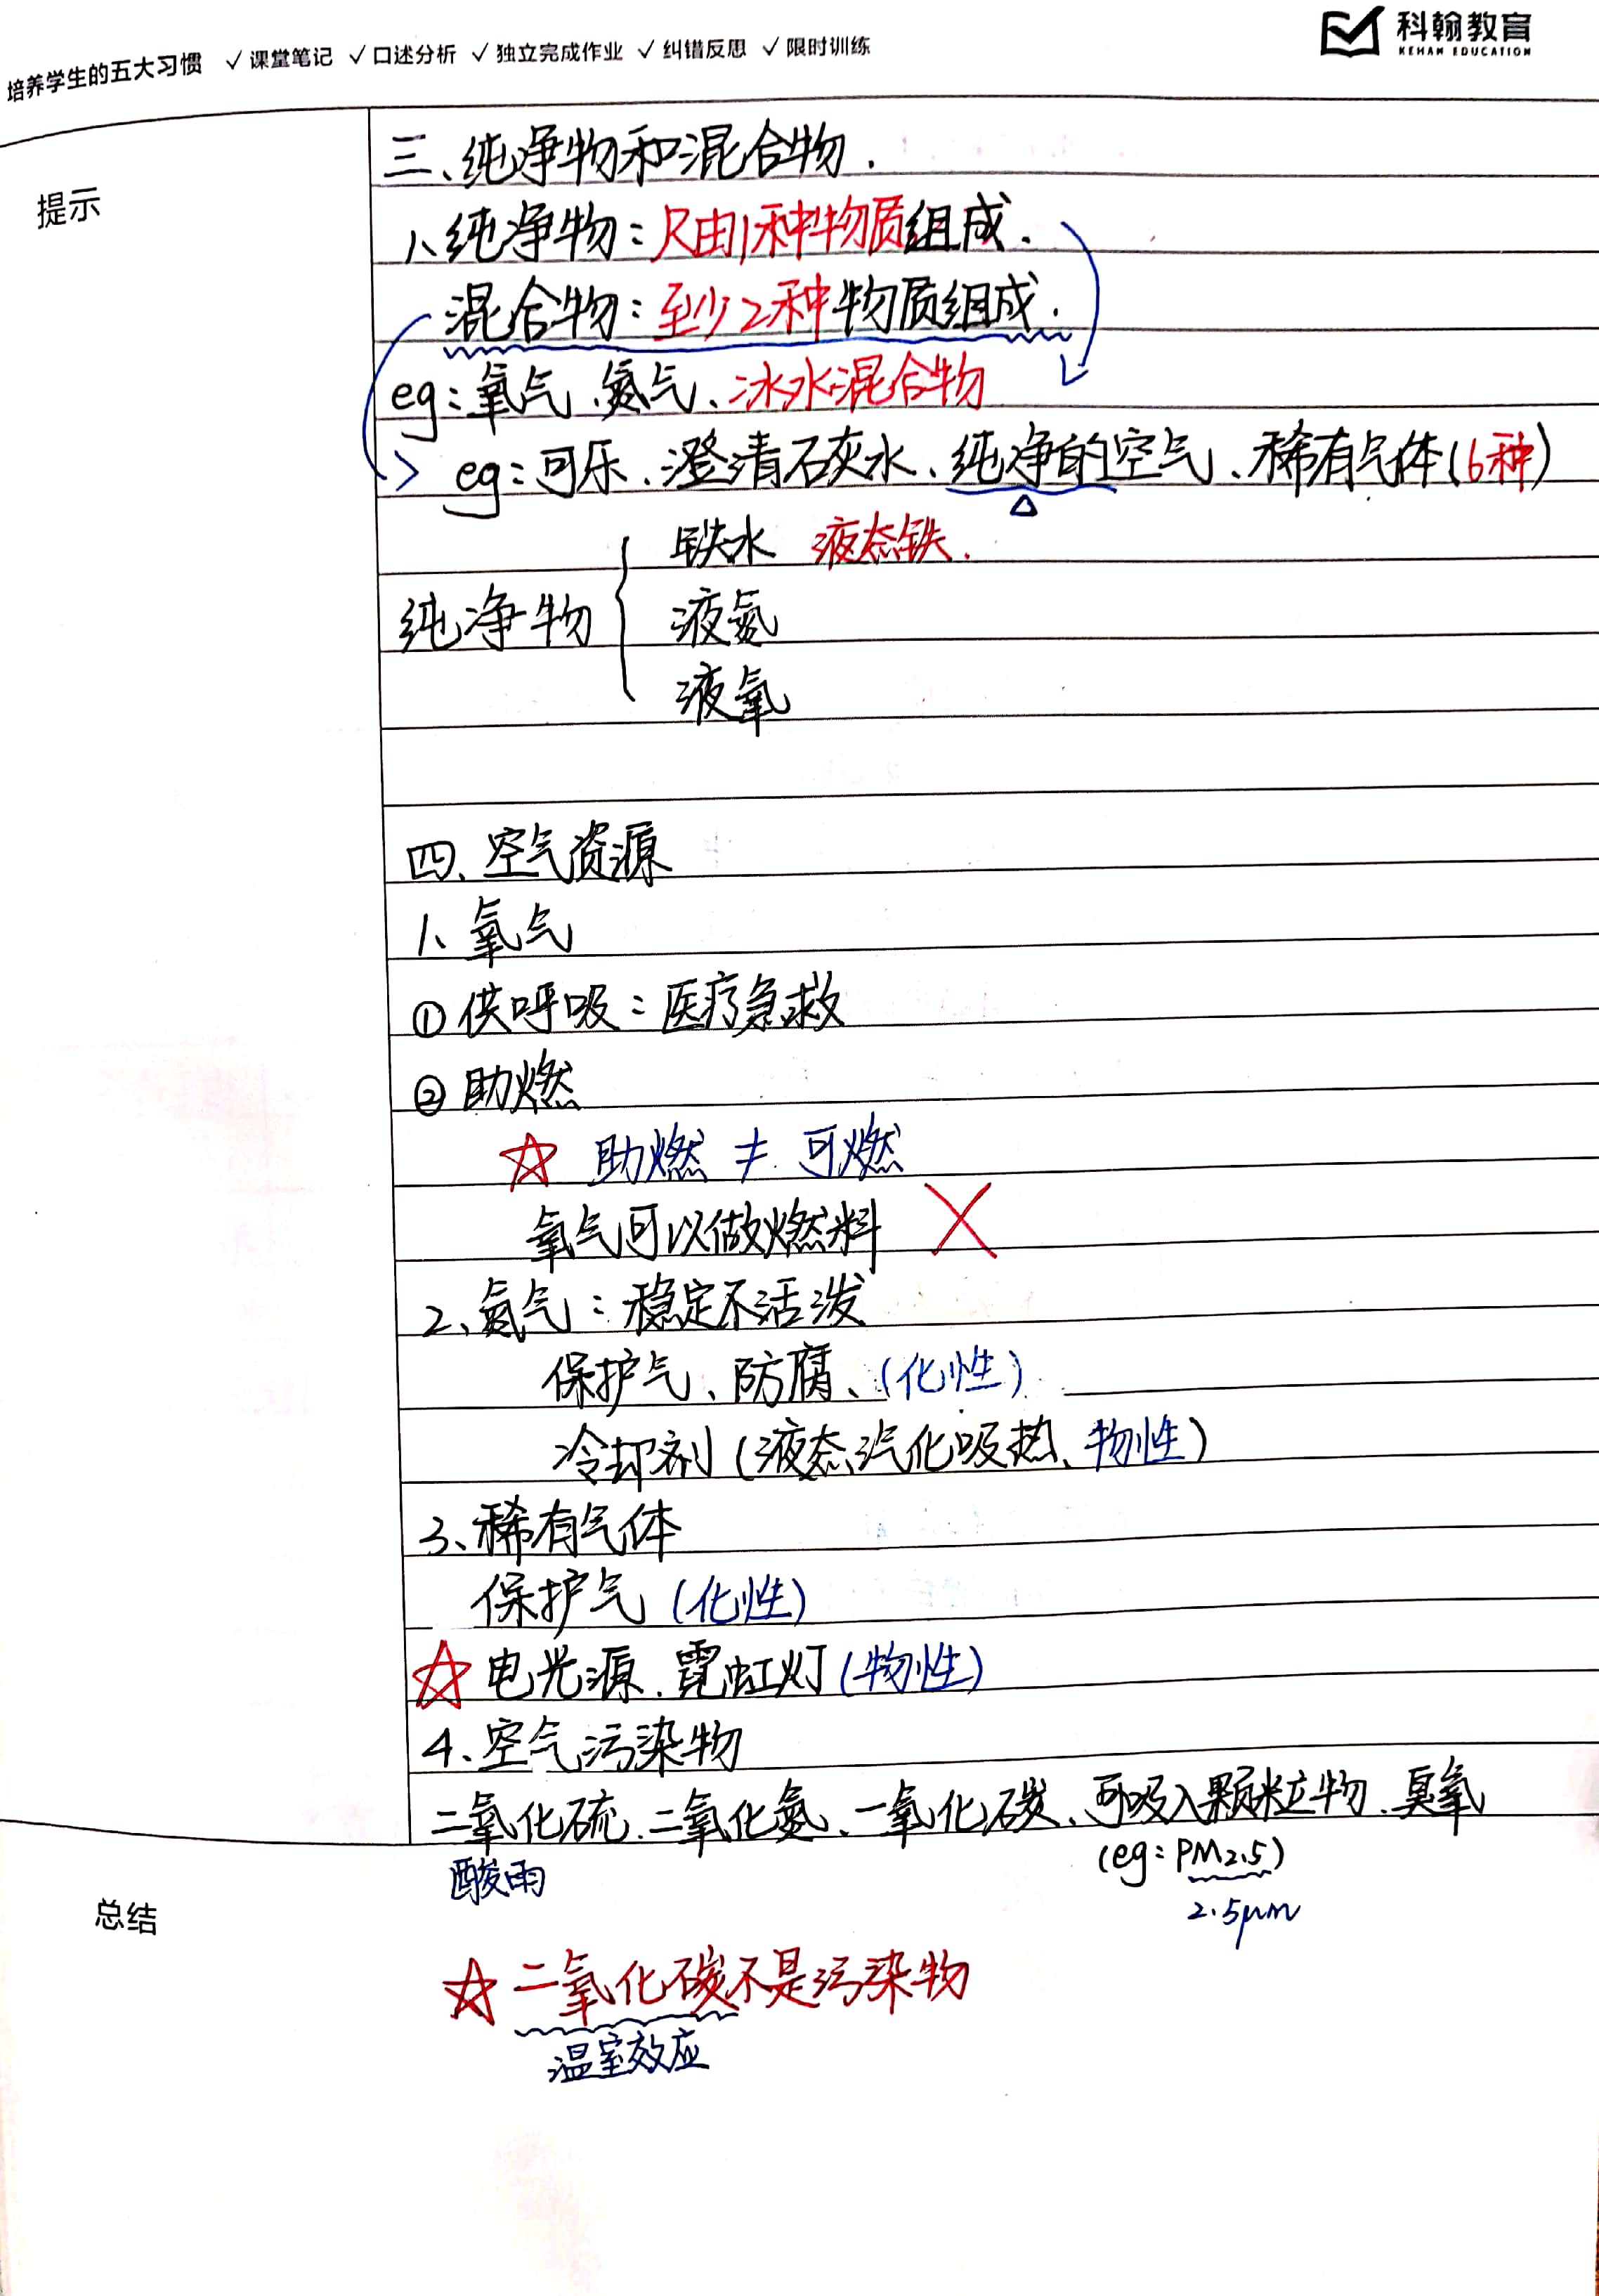 培养学生的五大习惯 ✓课堂笔记 ✓口述分析 ✓独立完成作业 ✓纠错反思 ✓限时训练
科翰教育
KEHAN EDUCATION
提示
三、纯净物和混合物.
1、纯净物：只由1种物质组成.
混合物：至少2种物质组成.
eg：氧气、氮气、冰水混合物
eg：可乐、澄清石灰水、纯净的空气、稀有气体(6种)
铁水 液态铁.
纯净物
液氮
液氧
四、空气资源
1、氧气
①供呼吸：医疗急救
②助燃
☆ 助燃 ≠ 可燃
氧气可以做燃料 ×
2、氮气：稳定不活泼
保护气、防腐、(化性)
冷却剂(液态汽化吸热、物性)
3、稀有气体
保护气(化性)
☆电光源、霓虹灯(物性)
4、空气污染物
二氧化硫、二氧化氮、一氧化碳、可吸入颗粒物、臭氧
酸雨
(eg：PM2.5)
2.5μm
总结
☆二氧化碳不是污染物
温室效应